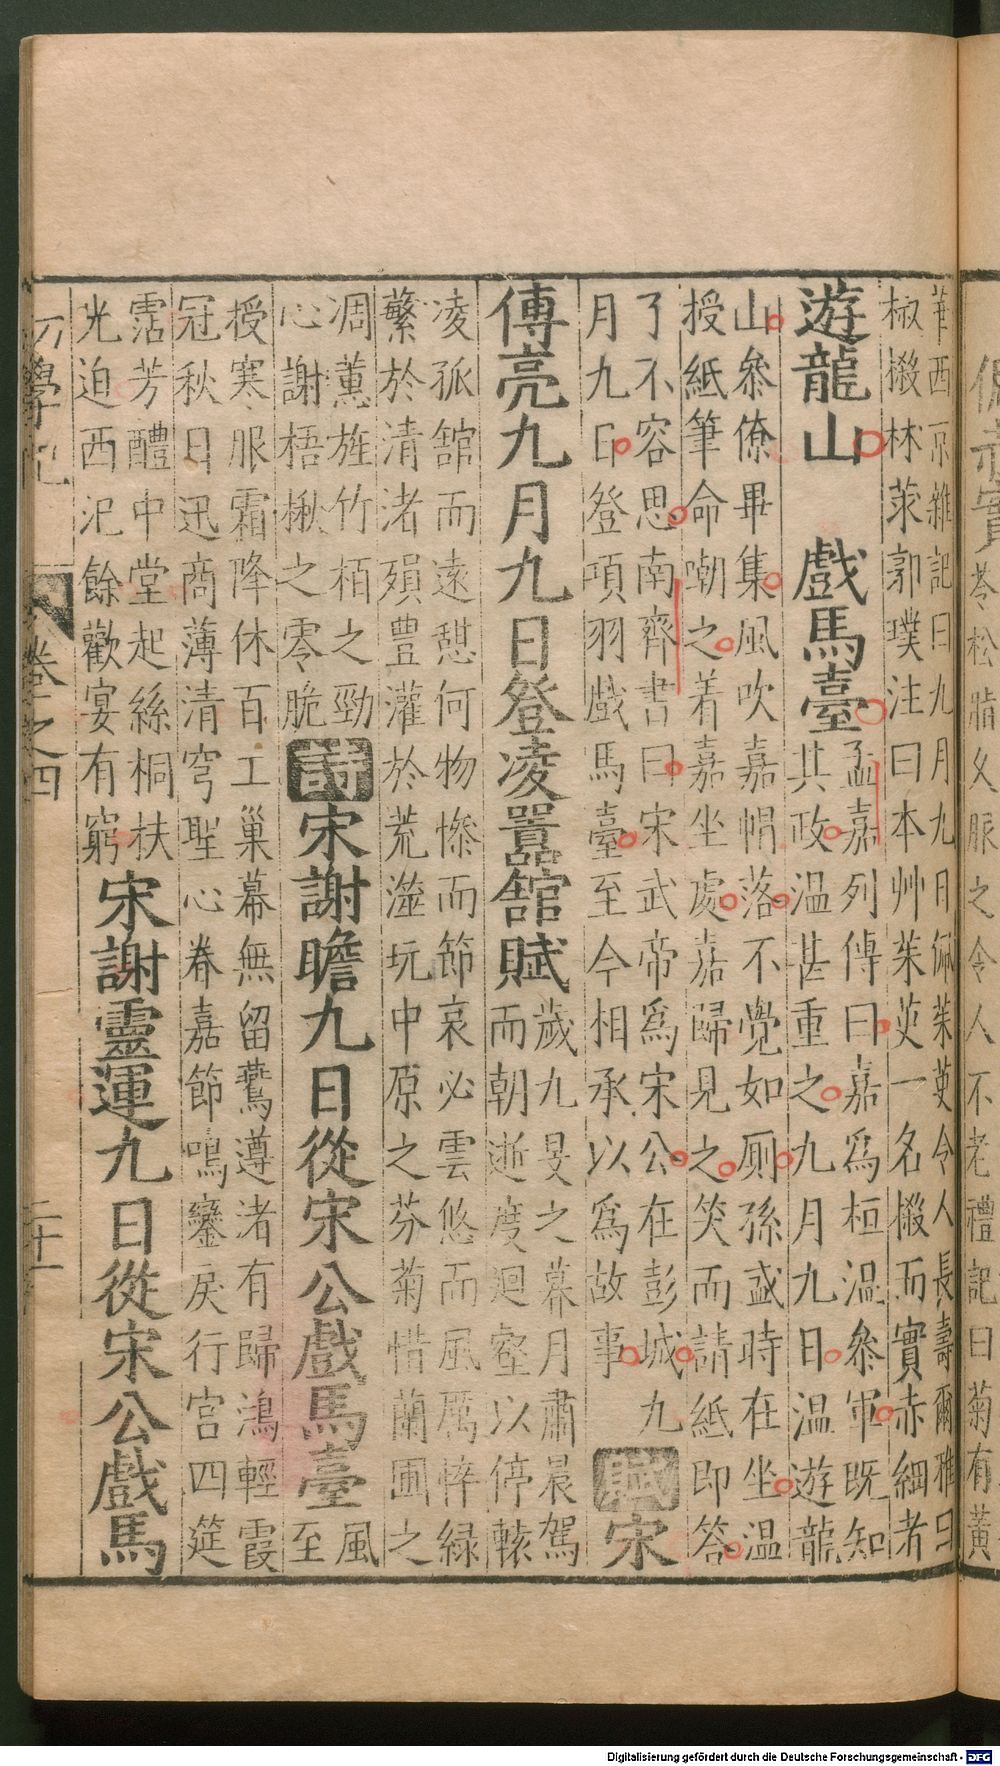 華西京雜記曰九月九日佩茱萸令人長壽爾雅曰
椒樧林莍郭璞注曰本艸茱萸一名樧而實赤細者
遊龍山　戲馬臺
孟嘉列傳曰嘉爲桓温叅軍既知
其政温甚重之九月九日温遊龍
山叅僚畢集風吹嘉帽落不覺如厠孫盛時在坐温
授紙筆命嘲之着嘉坐處嘉歸見之笑而請紙即答
了不容思南齊書曰宋武帝爲宋公在彭城九
月九日登項羽戲馬臺至今相承以爲故事
賦宋
傅亮九月九日登凌囂舘賦
歲九旻之暮月肅晨駕
而朝逝度迴壑以停轅
凌孤舘而遠憇何物慘而節哀必雲悠而風厲悴緑
蘩於清渚殞豊灌於荒澨玩中原之芬菊惜蘭圃之
凋薫旌竹栢之勁
心謝梧楸之零脆
詩宋謝瞻九日從宋公戲馬臺
風
至
授寒服霜降休百工巢幕無留鷰遵渚有歸鴻輕霞
冠秋日迅商薄清穹聖心眷嘉節鳴鑾戾行宫四筵
霑芳醴中堂起絲桐扶
光迫西汜餘歡宴有窮
宋謝靈運九日從宋公戲馬
學記
卷之四
二十一
苓松脂久服之令人不老禮記曰菊有黃
Digitalisierung gefördert durch die Deutsche Forschungsgemeinschaft - DFG